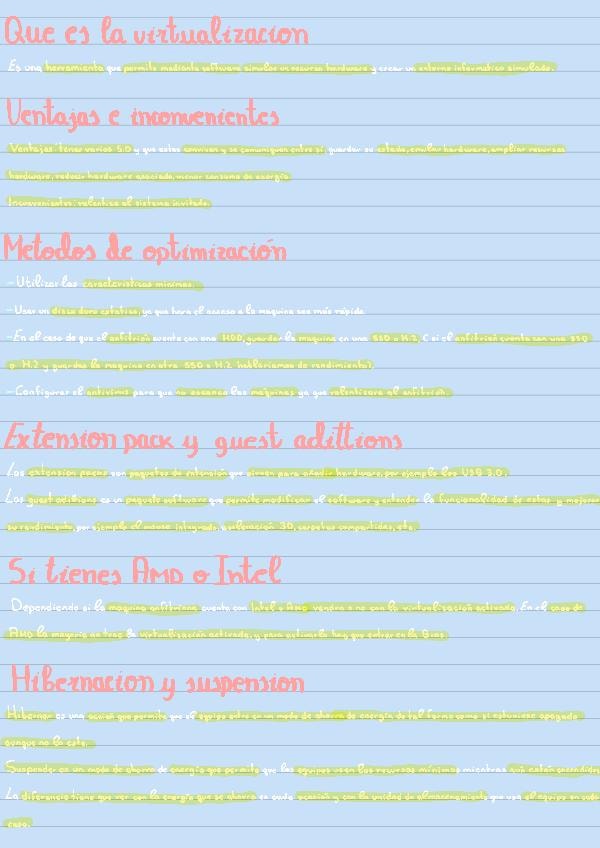 Que es la virtualizacion
Es una herramienta que permite mediante software simular un recurso hardware y crear un entorno informatico simulado.
Ventajas e inconvenientes
Ventajas: tener varios S.O y que estos convivan y se comuniquen entre si, guardar su estado, emular hardware, ampliar recursos
hardware, reducir hardware asociado, menor consumo de energía
Inconvenientes: ralentiza el sistema invitado.
Metodos de optimización
-Utilizar las caracteristicas minimas.
-Usar un disco duro estatico, ya que hara el acceso a la maquina sea más rápido
-En el caso de que el anfitrión cuente con una HDD, guardar la maquina en una SSD o M.2, ( si el anfitrión cuenta con una SSD
o M.2 y guardas la maquina en otra SSD o M.2 hablariamos de rendimiento).
-Configurar el antivirus para que no escanea las máquinas ya que ralentizara al anfitrión.
Extension pack y guest adittions
Las extension packs son paquetes de extensión que sirven para añadir hardware, por ejemplo los USB 3.0.
Las guest aditions es un paquete software que permite modificar el software y extender la funcionalidad de estas y mejorar
su rendimiento, por ejemplo el mouse integrado, aceleración 3D, carpetas compartidas, etc.
Si tienes AMD o Intel
Dependiendo si la maquina anfitriona cuenta con Intel o AMD vendra o no con la virtualización activada. En el caso de
AMD la mayoría no trae la virtualización activada, y para activarla hay que entrar en la Bios.
Hibernacion y suspension
Hibernar es una acción que permite que el equipo entre en un modo de ahorro de energía de tal forma como si estuviese apagado
aunque no lo este.
Suspender es un modo de ahorro de energía que permite que los equipos usen los recursos mínimos mientras aún están encendidos
La diferencia tiene que ver con la energía que se ahorra en cada ocasión y con la unidad de almacenamiento que usa el equipo en cada
caso.